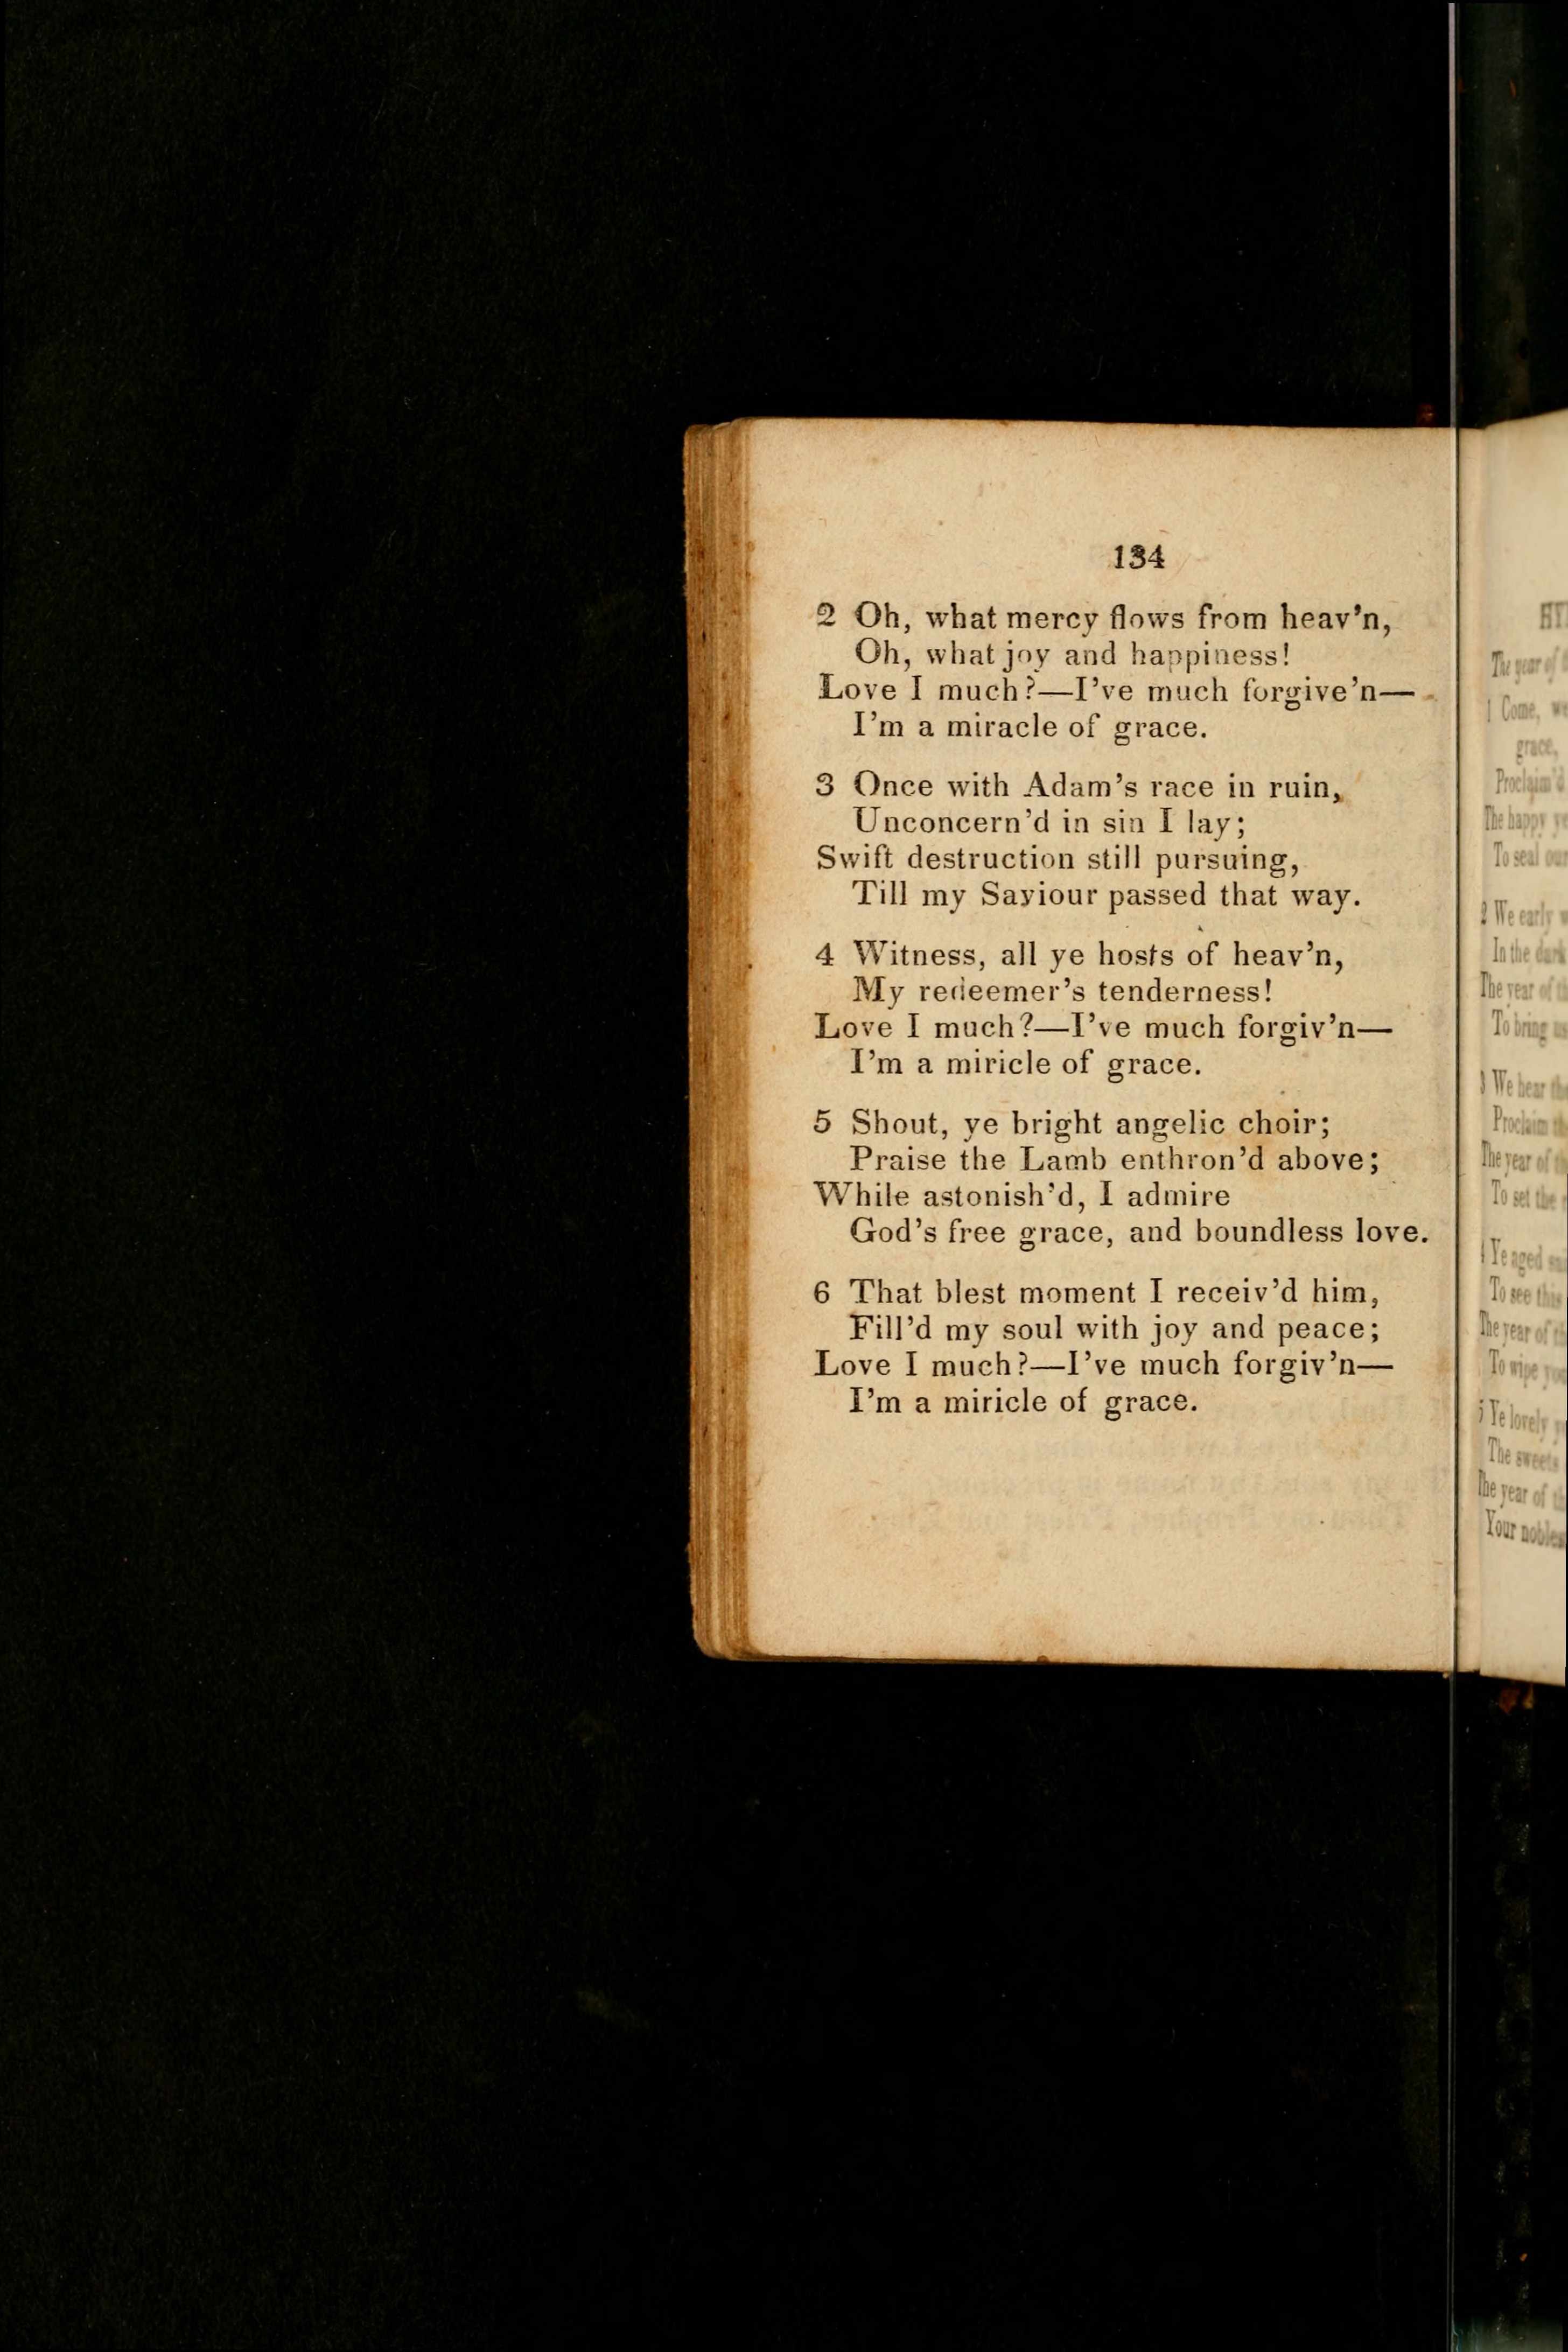 134
2 Oh, what mercy flows from heav'n,
Oh, what joy and happiness!
Love I much?—I've much forgive'n—
I'm a miracle of grace.
3 Once with Adam's race in ruin,
Unconcern'd in sin I lay;
Swift destruction still pursuing,
Till my Sayiour passed that way.
4 Witness, all ye hosts of heav'n,
My redeemer's tenderness!
Love I much?—I've much forgiv'n—
I'm a miricle of grace.
5 Shout, ye bright angelic choir;
Praise the Lamb enthron'd above;
While astonish'd, I admire
God's free grace, and boundless love.
6 That blest moment I receiv'd him,
Fill'd my soul with joy and peace;
Love I much?—I've much forgiv'n—
I'm a miricle of grace.
The year of
1 Come,
grace,
Proclaim'd
The happy
To seal our
2 We early
In the dark
The year of
To bring us
3 We hear the
Proclaim
The year of
To set the
4 Ye aged
To see this
The year of
To wipe
5 Ye lovely
The sweets
The year of
Your